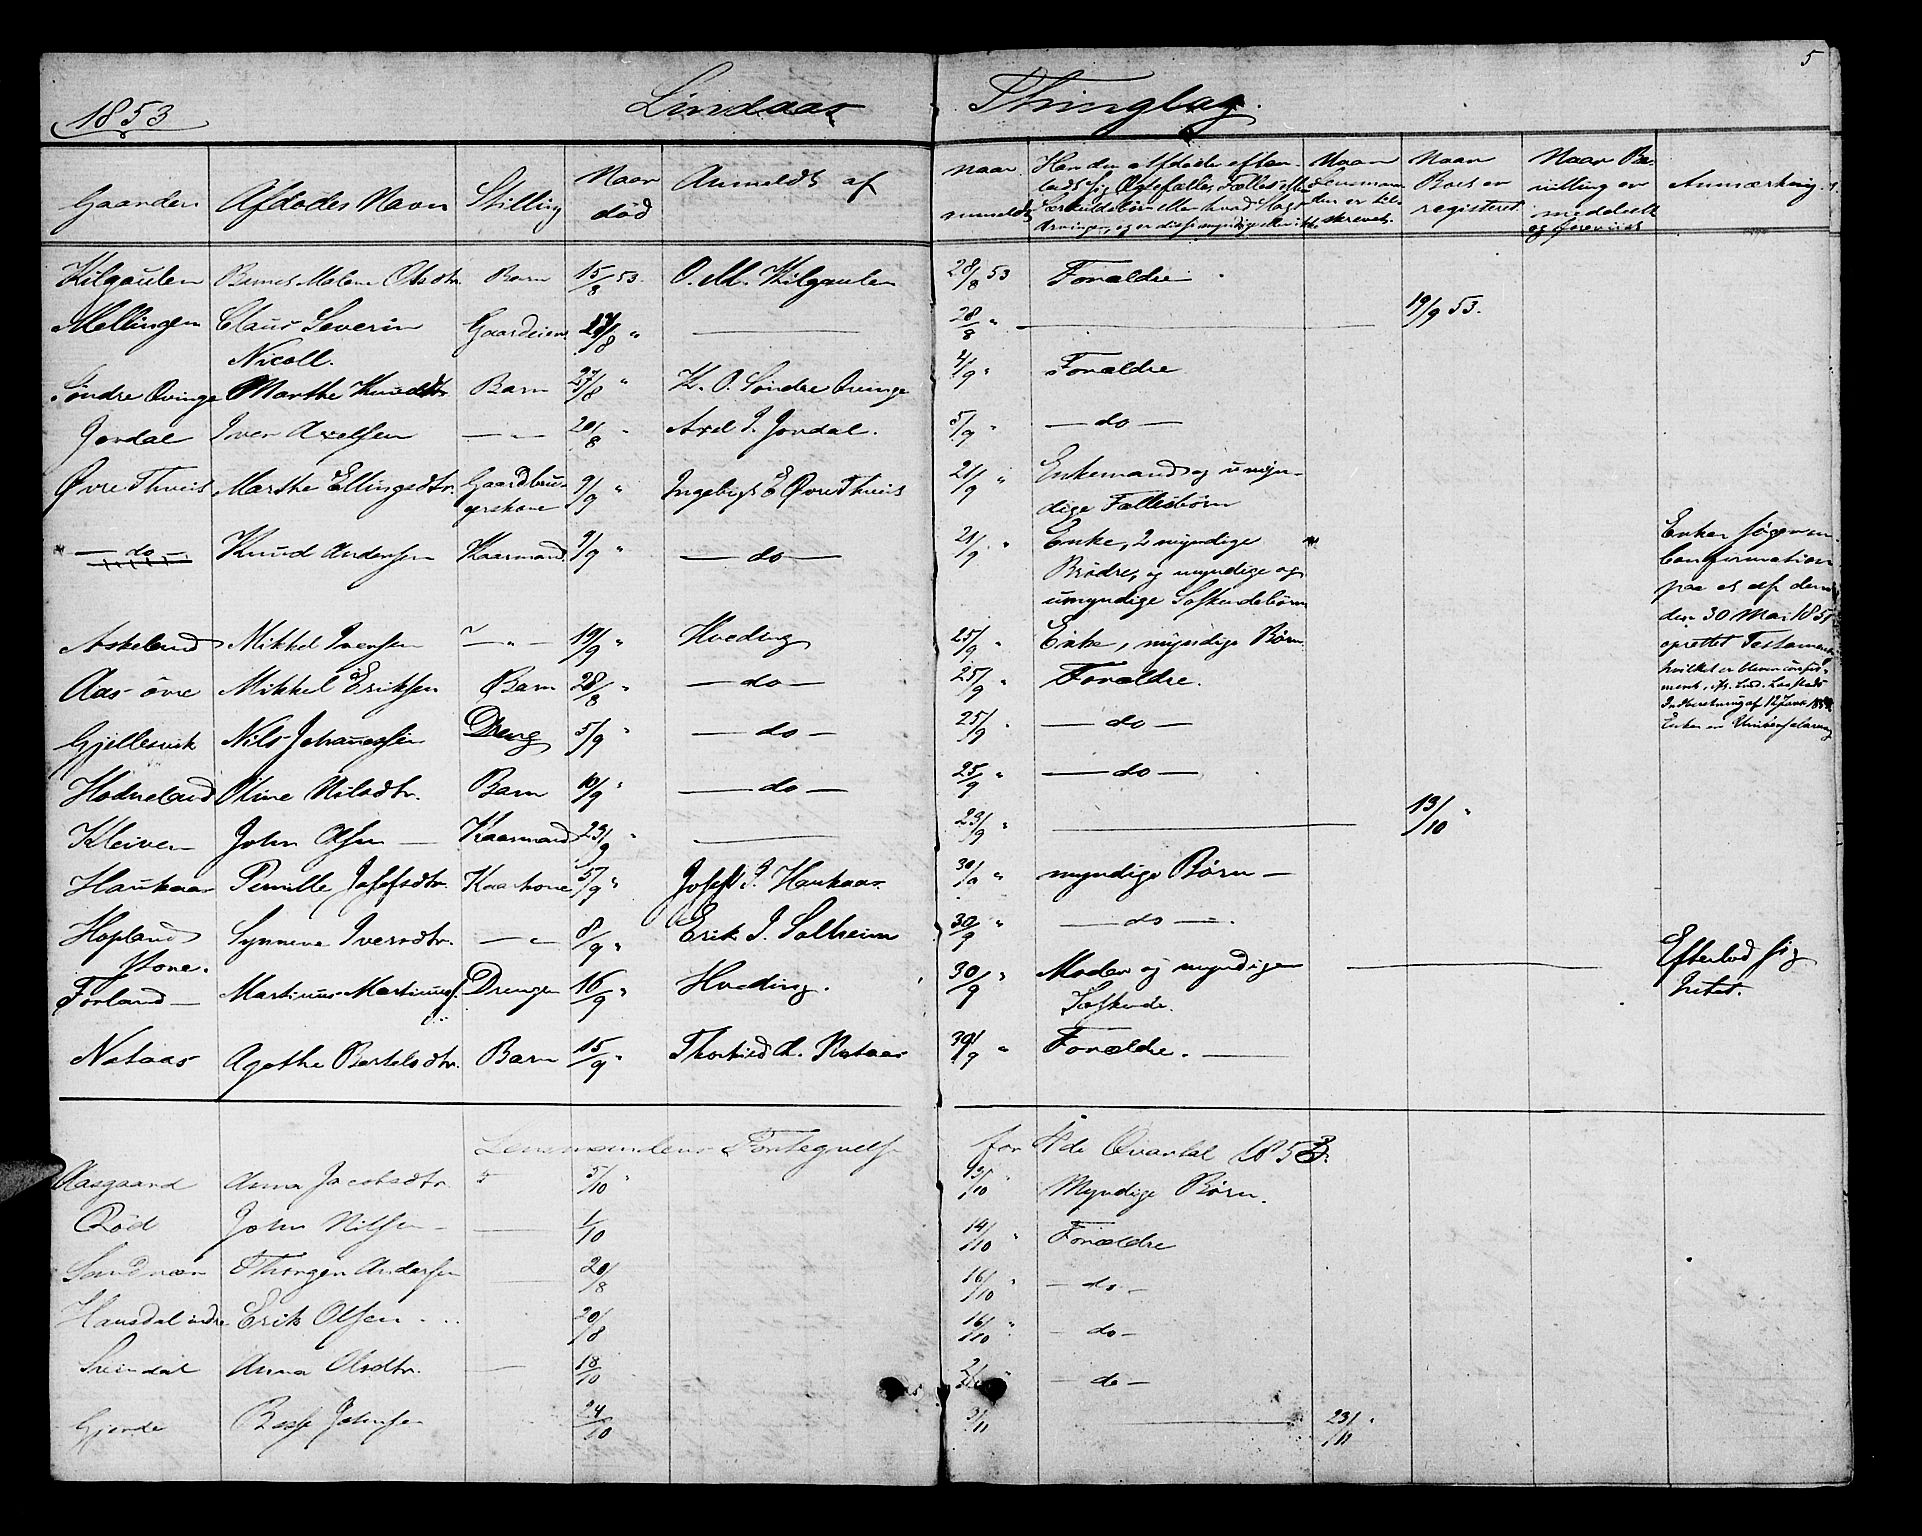 5
1853 Lindaas Thinglag.
Gaarden Afdødes Navn Stilling Naar død Anmeldt af Naar anmeldt Har den Afdøde efterladt sig Ægtefælle, Fælles eller Særkuldsbørn eller hvad Slags Arvinger, og er disse myndige eller ikke Naar Lensmanden er tilskrevet Naar Boet er registeret Naar Bevilling er meddeelt og forevist Anmærkninger.
Kilgaulen Malene Olsdtr. Barn 15/8 53. O. M. Kilgaulen 28/8 53 Forældre
Mellingen Claus Severin Gaardeier " 28/8 " 19/9 53.
Nicoll.
Søndre Qvinge Marthe Knudsdtr Barn 27/8 " K. O. Søndre Qvinge 4/9 " Forældre
Jordal Iver Axelsen — " — 20/8 " Axel I. Jordal. 5/9 " — do —
Øvre Thveit Marthe Ellingsdtr. Gaardbru- 9/9 " Ingebrigt E Øvre Thveit 21/9 " Enkemand og umyn-
gerskone dige Fællesbørn
— do — Knud Andersen Kaarmand 9/9 " — do — 21/9 " Enke, 2 myndige
Brødre, og myndige og
umyndige Søskendebørn
Enken søger om
Confirmation
paa et af dem
den 30 Mai 1851
oprettet Testament
Askeland Mikkel Iversen — " — 19/9 " Hveding 25/9 " Enke, myndige Børn
Aas øvre Mikkel Eriksen Barn 28/8 " — do — 25/9 " Forældre.
Gjellesvik Nils Johannessen Dreng 5/9 " — do — 25/9 " — do —
Hodneland Oline Nilsdtr. Barn 10/9 " — do — 25/9 " — do —
Kleiven John Olsen — Kaarmand 23/9 " 23/9 " 13/10 "
Haukaas Pernille Josefsdtr. Kaarkone 5/9 " Josef J. Haukaas 30/9 " myndige Børn —
Hopland Synneve Iversdtr. — " — 8/9 " Erik I. Solheim 30/9 " — do —.
Forland — Martinus Martinuss. Drengen 16/9 " Hveding. 30/9 " Moder og myndige Efterlod sig
Søskende. Intet.
Nataas Agathe Bertelsdtr. Barn 15/9 " 30/9 " Forældre. —
Lensmandens Fortegnelse for 4de Qvartal 1853.
Aasgaard Anna Jacobsdtr. 5/10 " 13/10 " Myndige Børn.
Rød John Nilsen — 1/10 14/10 " Forældre
Sandnæs Thorger Andersen 20/8 16/10 " — do —
Hausdal indre Erik Olsen 20/8 16/10 " — do —
Sveindal Anna Olsdtr. — 18/10 — do —
Gjerde Johnsen 24/10 3/11 23/11 "